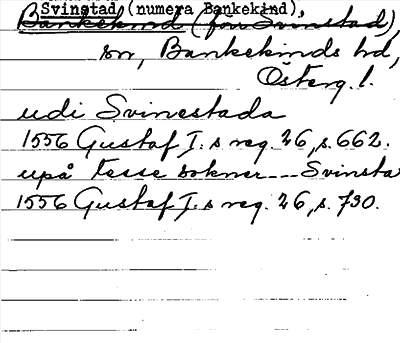 Svinstad (numera Bankekind),
Bankekind (förr Svinstad),
sn, Bankekinds hd,
Österg. l.
udi Svinestada
1556 Gustaf I:s reg. 26, s. 662.
upå tesse sokner --- Svinsta
1556 Gustaf I:s reg. 26, s. 730.